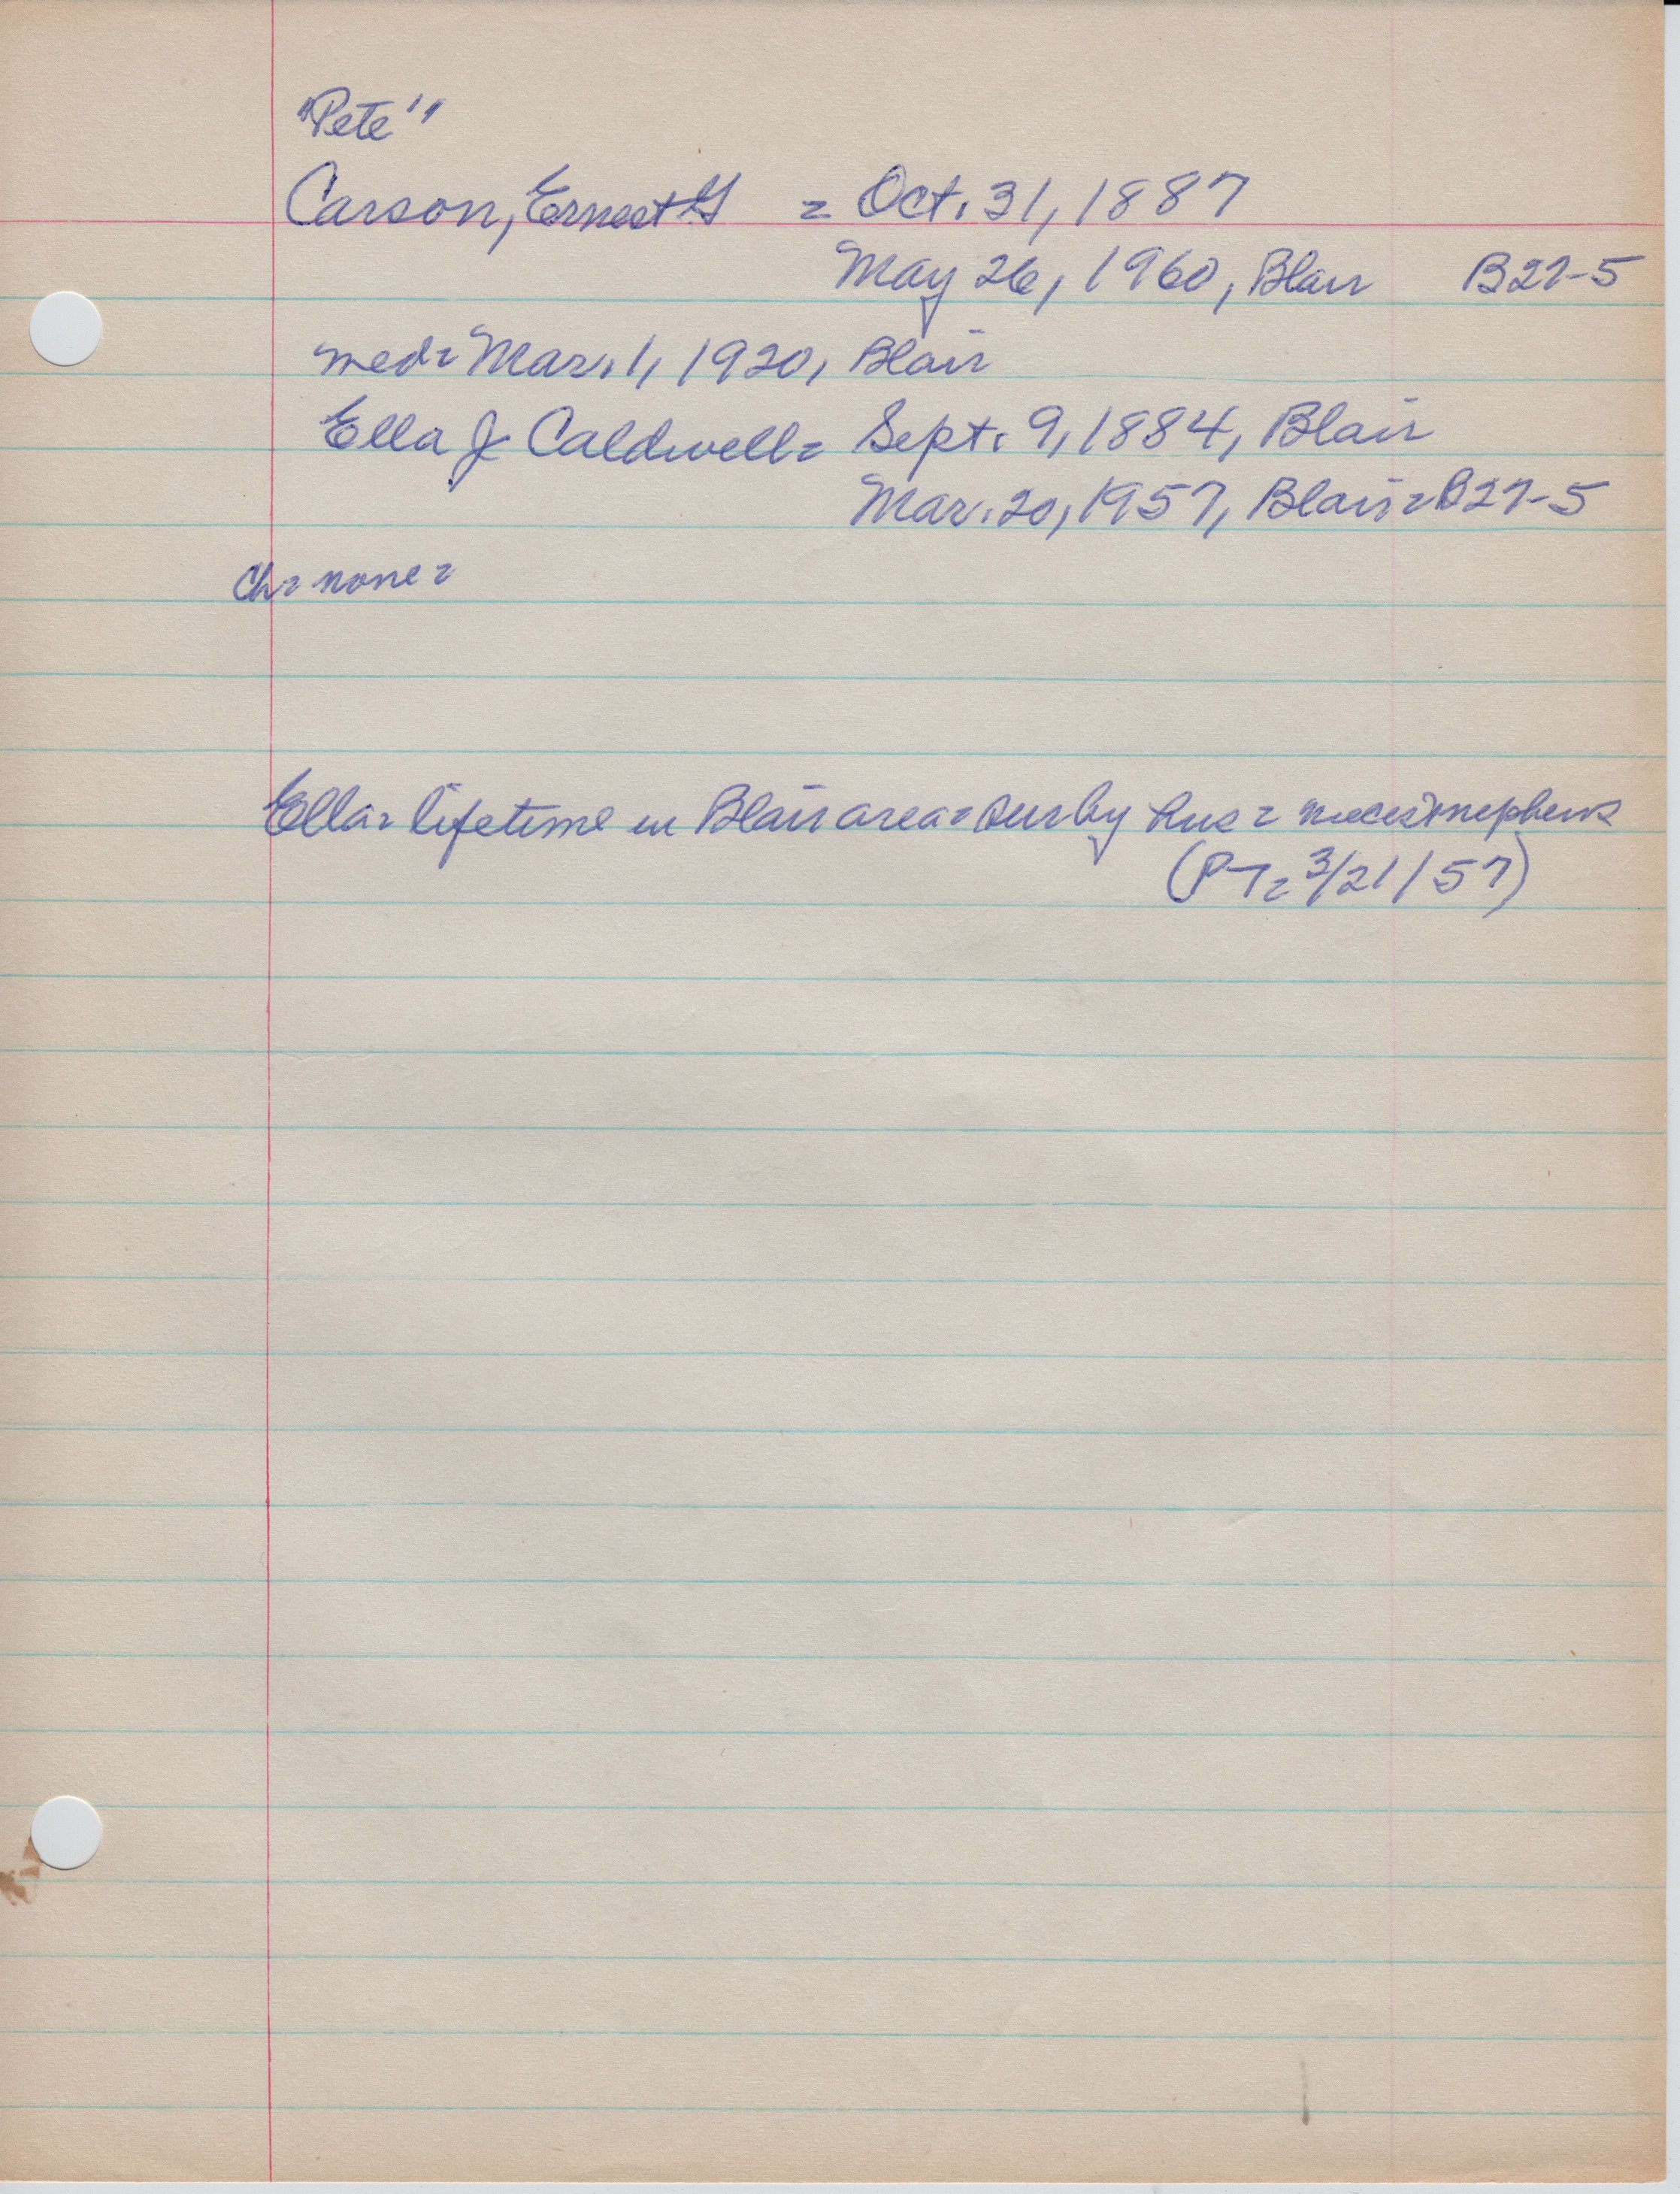 "Pete"
Carson, Ernest G = Oct. 31, 1887
May 26, 1960, Blair B27-5
med= Mar. 1, 1920, Blair
Ella J Caldwell= Sept. 9, 1884, Blair
Mar. 20, 1957, Blair= B27-5
Ch= none=
Ella= lifetime in Blair area= sur by hus= nieces & nephews
(PT= 3/21/57)